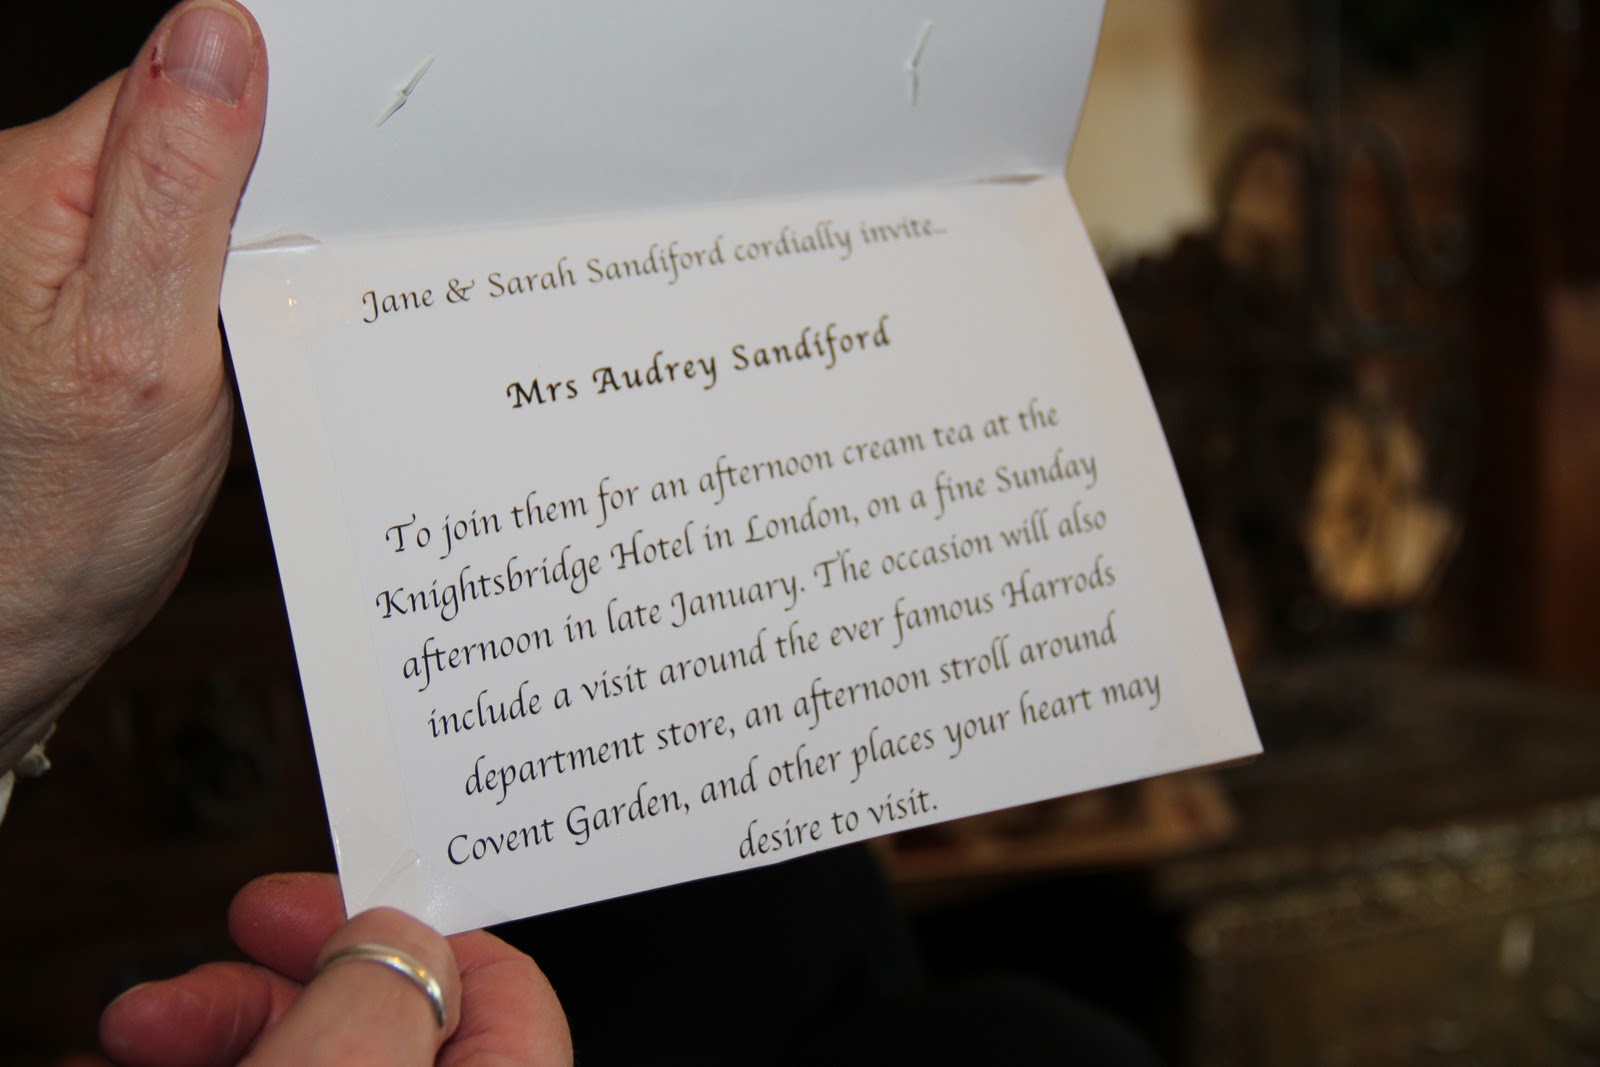 Jane & Sarah Sandiford cordially invite...
Mrs Audrey Sandiford
To join them for an afternoon cream tea at the
Knightsbridge Hotel in London, on a fine Sunday
afternoon in late January. The occasion will also
include a visit around the ever famous Harrods
department store, an afternoon stroll around
Covent Garden, and other places your heart may
desire to visit.